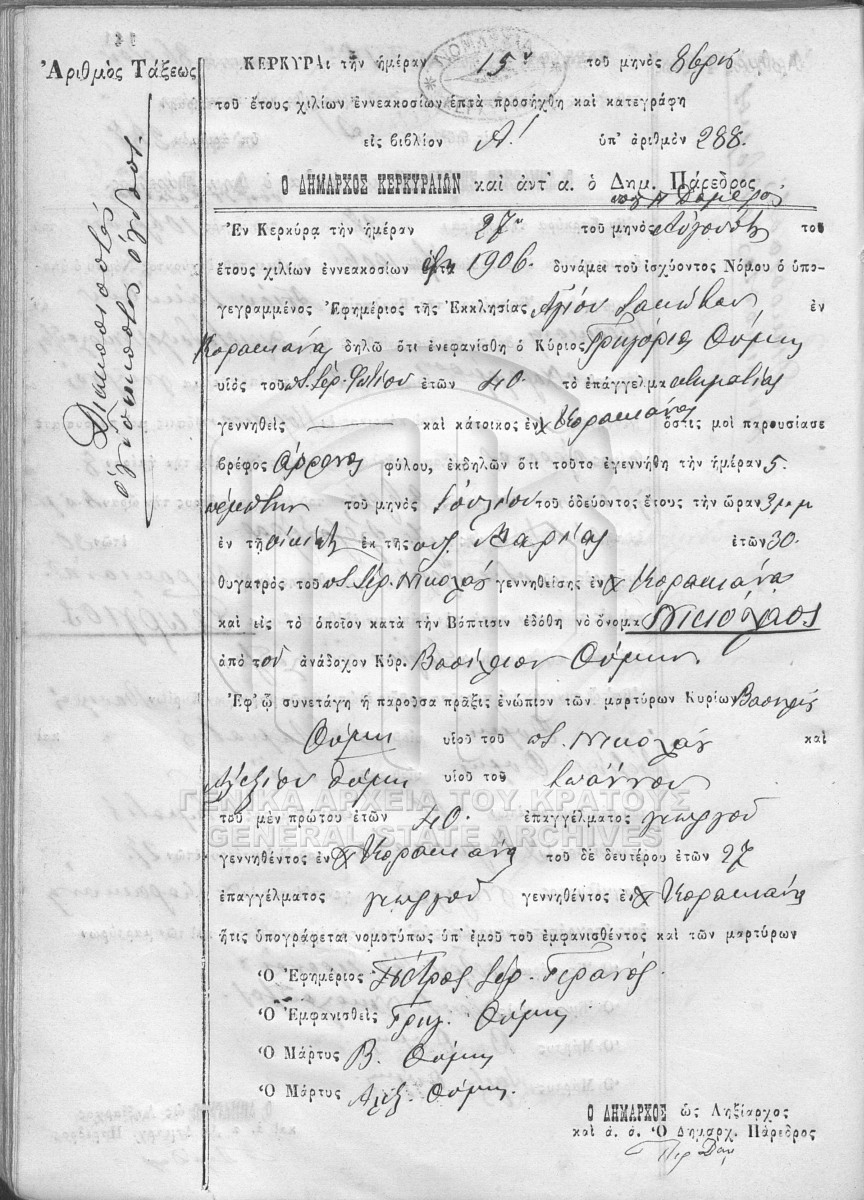 Ἀριθμὸς Τάξεως
ΚΕΡΚΥΡΑι τὴν ἡμέραν 15 τοῦ μηνὸς 8βρίου
τοῦ ἔτους χιλίων ἐννεακοσίων ἑπτὰ προσήχθη καὶ κατεγράφη
εἰς βιβλίον Α! ὑπ' ἀριθμὸν 288.
Ο ΔΗΜΑΡΧΟΣ ΚΕΡΚΥΡΑΙΩΝ καὶ ἀντ' α. ὁ Δημ. Πάρεδρος
Ἐν Κερκύρᾳ τὴν ἡμέραν 27 τοῦ μηνὸς Αὐγούστου τοῦ
ἔτους χιλίων ἐννεακοσίων ἑπτὰ 1906. δυνάμει τοῦ ἰσχύοντος Νόμου ὁ ὑπο-
γεγραμμένος Ἐφημέριος τῆς Ἐκκλησίας Ἁγίου Ἰακώβου ἐν
Κορακιάνᾳ δηλῶ ὅτι ἐνεφανίσθη ὁ Κύριος Γρηγόριος Θύμης
υἱὸς τοῦ ποτ. Ἱερ. Φωτίου ἐτῶν 40. τὸ ἐπάγγελμα κτηματίας
γεννηθεὶς καὶ κάτοικος ἐν Χ Κορακιάνᾳ ὅστις μοὶ παρουσίασε
βρέφος ἄρρενος φύλου, ἐκδηλῶν ὅτι τοῦτο ἐγεννήθη τὴν ἡμέραν 5.
πέμπτην τοῦ μηνὸς Ἰουλίου τοῦ ὁδεύοντος ἔτους τὴν ὥραν 3 μ μ
ἐν τῇ οἰκίᾳ ἐκ τῆς Μαρίας ἐτῶν 30.
θυγατρὸς τοῦ ποτ. Ἱερ. Νικολάου γεννηθείσης ἐν Χ Κορακιάνᾳ
καὶ εἰς τὸ ὁποῖον κατὰ τὴν Βάπτισιν ἐδόθη τὸ ὄνομα Νικόλαος
ἀπὸ τοῦ ἀνάδοχον Κύρ. Βασίλειον Θύμην
Ἐφ' ᾧ συνετάγη ἡ παροῦσα πρᾶξις ἐνώπιον τῶν μαρτύρων Κυρίων Βασιλείου
Θύμη υἱοῦ τοῦ ποτ. Νικολάου καὶ
Ἀλεξίου Θύμη υἱοῦ τοῦ Ἰωάννου
ΓΕΝΙΚΑ ΑΡΧΕΙΑ ΤΟΥ ΚΡΑΤΟΥΣ
τοῦ μὲν πρώτου ἐτῶν 40. ἐπαγγέλματος γεωργοῦ
GENERAL STATE ARCHIVES
γεννηθέντος ἐν Χ Κορακιάνᾳ τοῦ δὲ δευτέρου ἐτῶν 27
ἐπαγγέλματος γεωργοῦ γεννηθέντος ἐν Χ Κορακιάνᾳ
ἥτις ὑπογράφεται νομοτύπως ὑπ' ἐμοῦ τοῦ ἐμφανισθέντος καὶ τῶν μαρτύρων
Ὁ Ἐφημέριος Πέτρος Ἱερ. Γερανός.
Ὁ Ἐμφανισθεὶς Γρηγ. Θύμης
Ὁ Μάρτυς Β. Θύμης
Ὁ Μάρτυς Ἀλέξ. Θύμης
Ο ΔΗΜΑΡΧΟΣ ὡς Ληξίαρχος
καὶ ἀ. ἀ. Ὁ Δημαρχ. Πάρεδρος